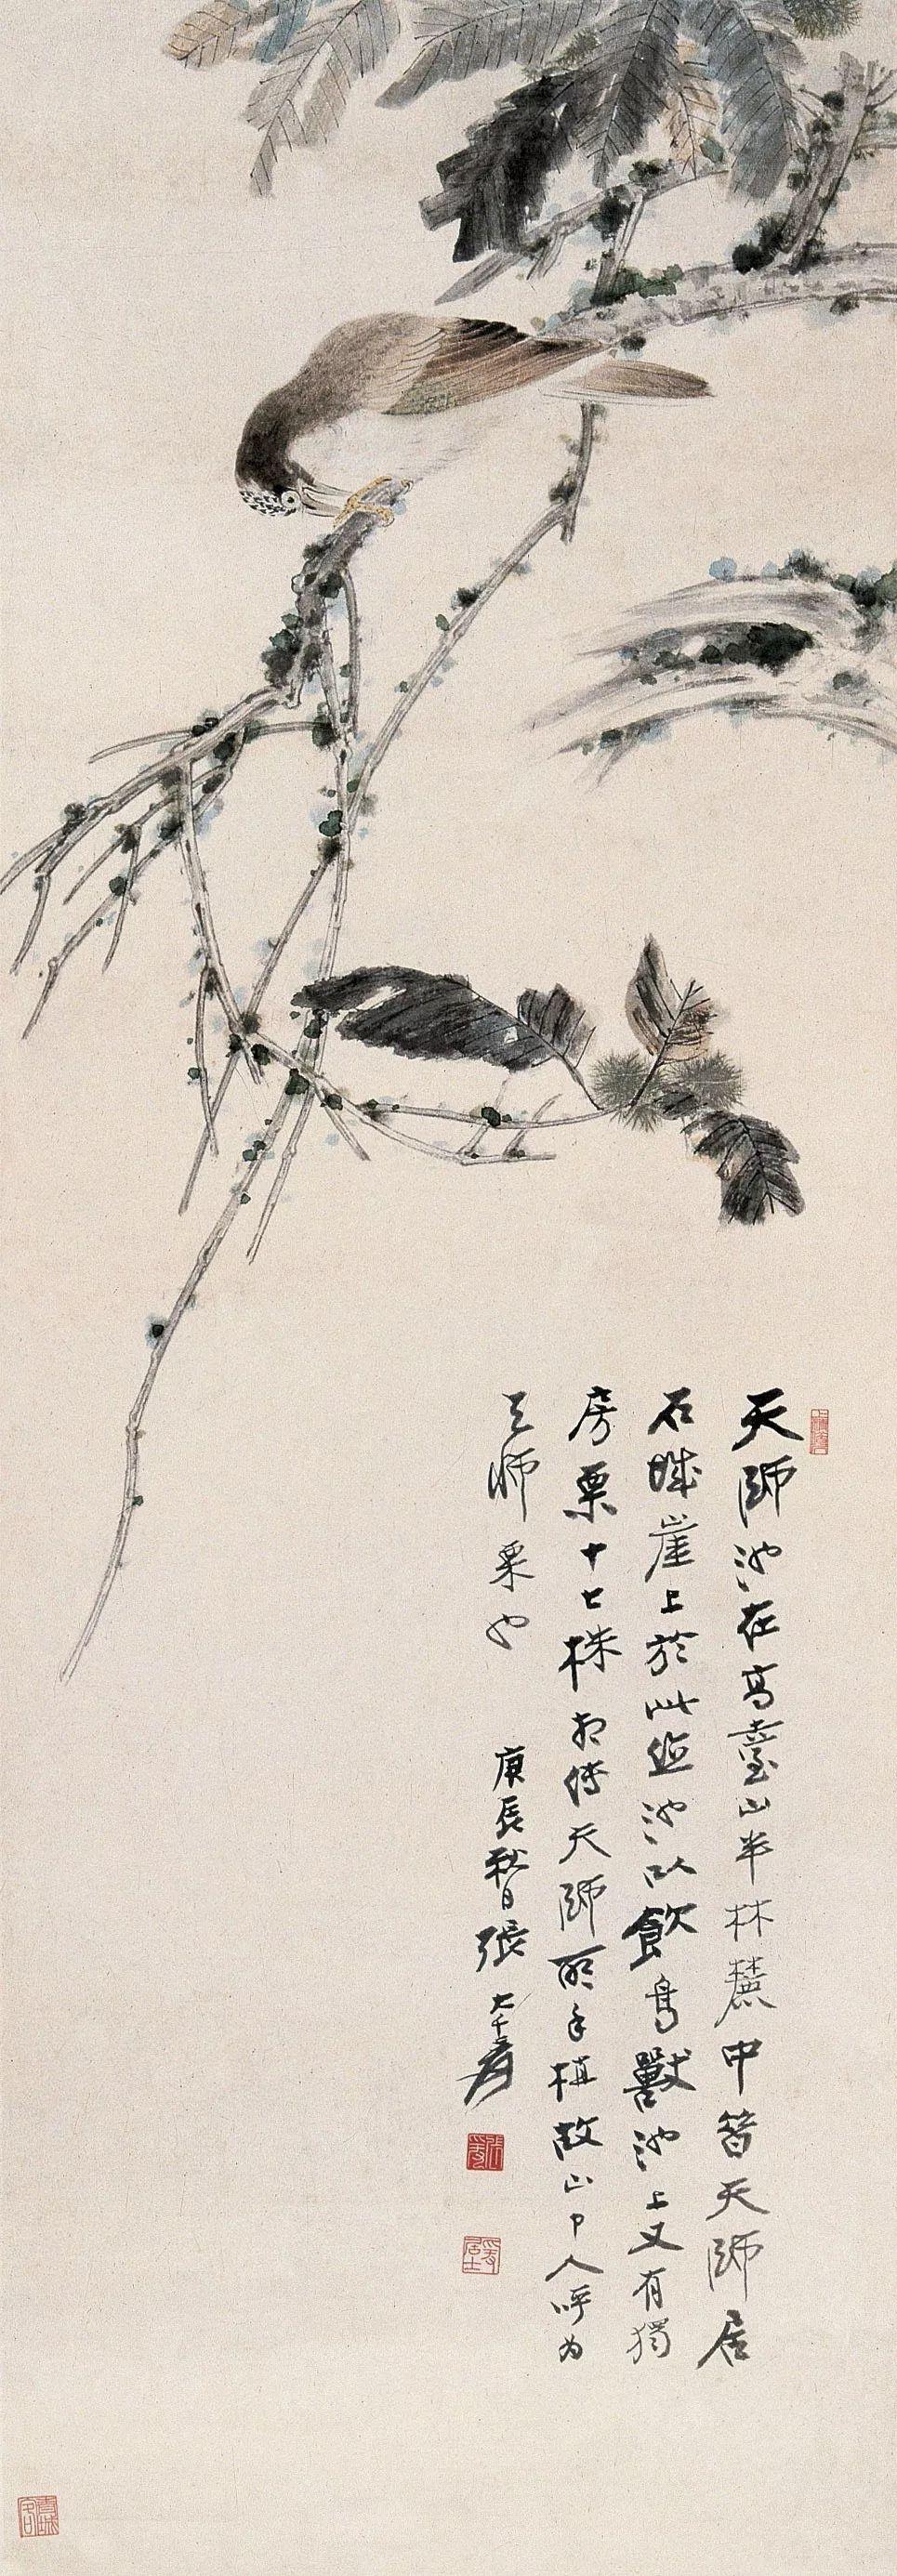 天師池在高臺山半林麓中昔天師居
石城崖上於此鑿池以飲鳥獸池上又有獨
房栗十七株相傳天師所手植故山中人呼為
天師栗也
庚辰秋日張大千爰
張爰